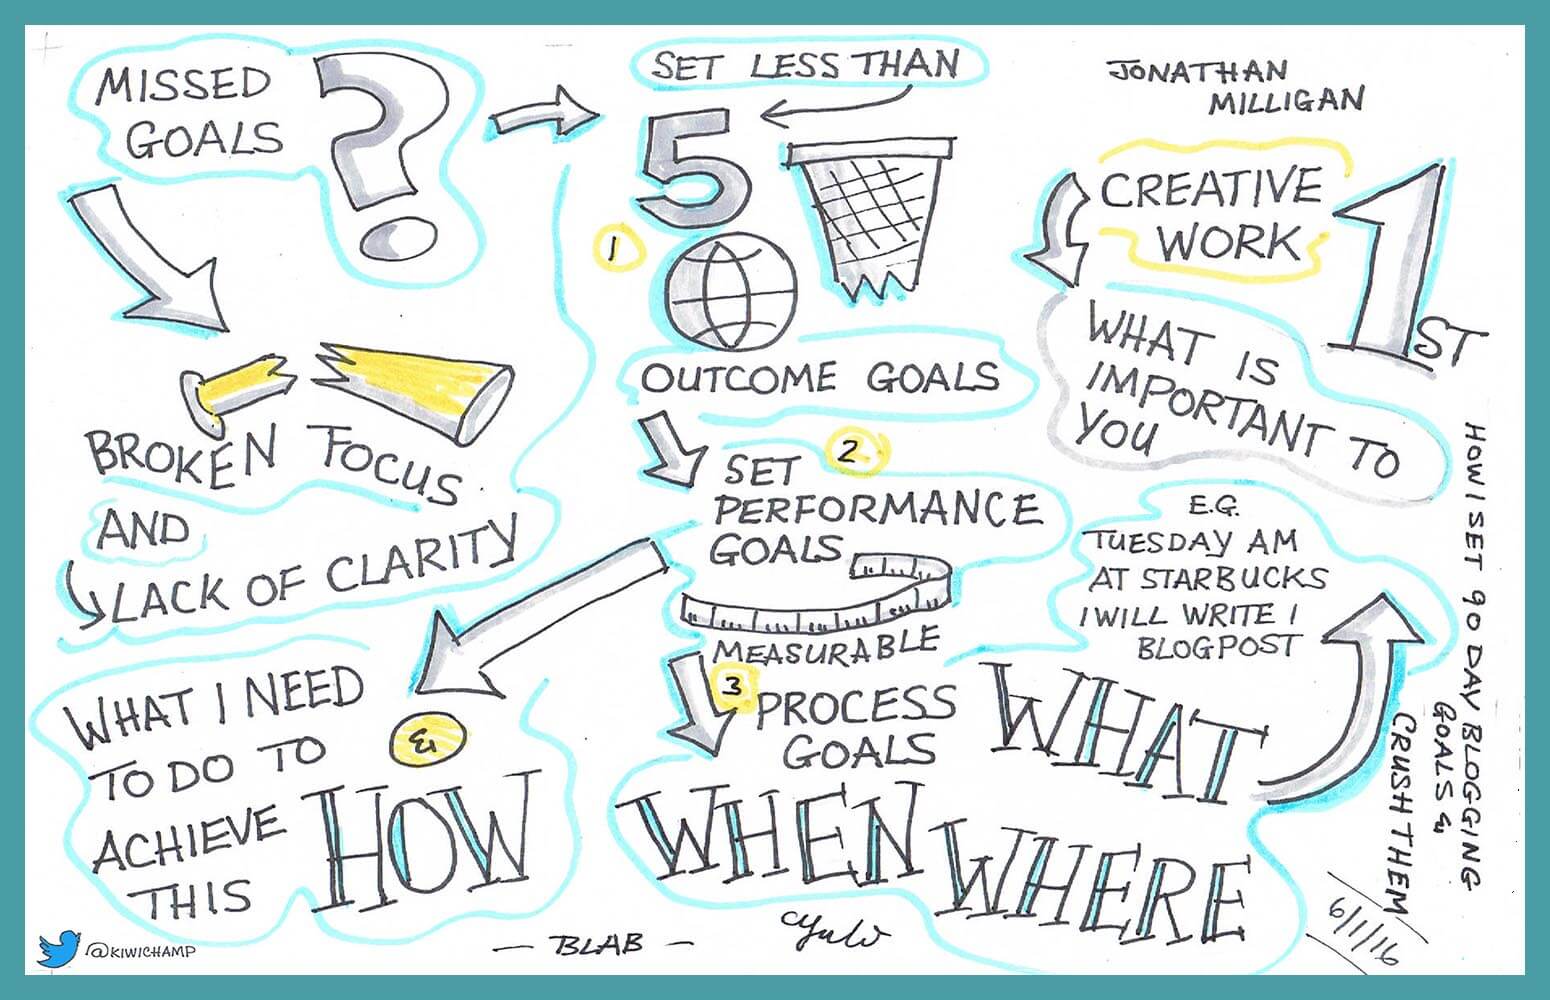 MISSED
GOALS
?
SET LESS THAN
5
1
OUTCOME GOALS
JONATHAN
MILLIGAN
CREATIVE
WORK
1ST
WHAT IS
IMPORTANT TO
YOU
BROKEN FOCUS
AND
LACK OF CLARITY
2
SET
PERFORMANCE
GOALS
MEASURABLE
WHAT I NEED
TO DO TO
ACHIEVE
THIS
&
HOW
3
PROCESS
GOALS
WHEN
WHAT
WHERE
E.G.
TUESDAY AM
AT STARBUCKS
I WILL WRITE 1
BLOGPOST
HOW I SET 90 DAY BLOGGING
GOALS &
CRUSH THEM
6/1/16
@KIWICHAMP
— BLAB —